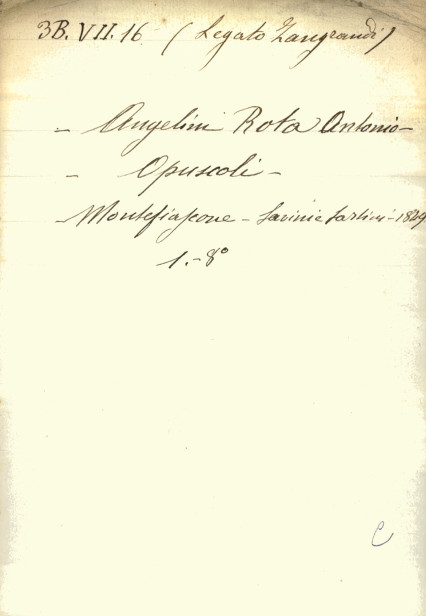 3B. VII. 16 (Legato Zangrandi)
- Angelini Rota Antonio -
- Opuscoli -
- Montefiascone - Savini e Sartini - 1849
1. - 8°
C